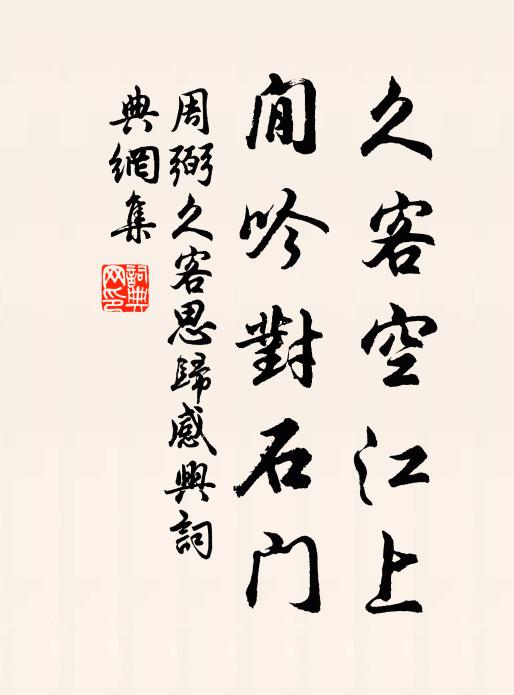 久客空江上
閒吟對石门
周弼久客思歸感興詞
典網集
詞典
网印